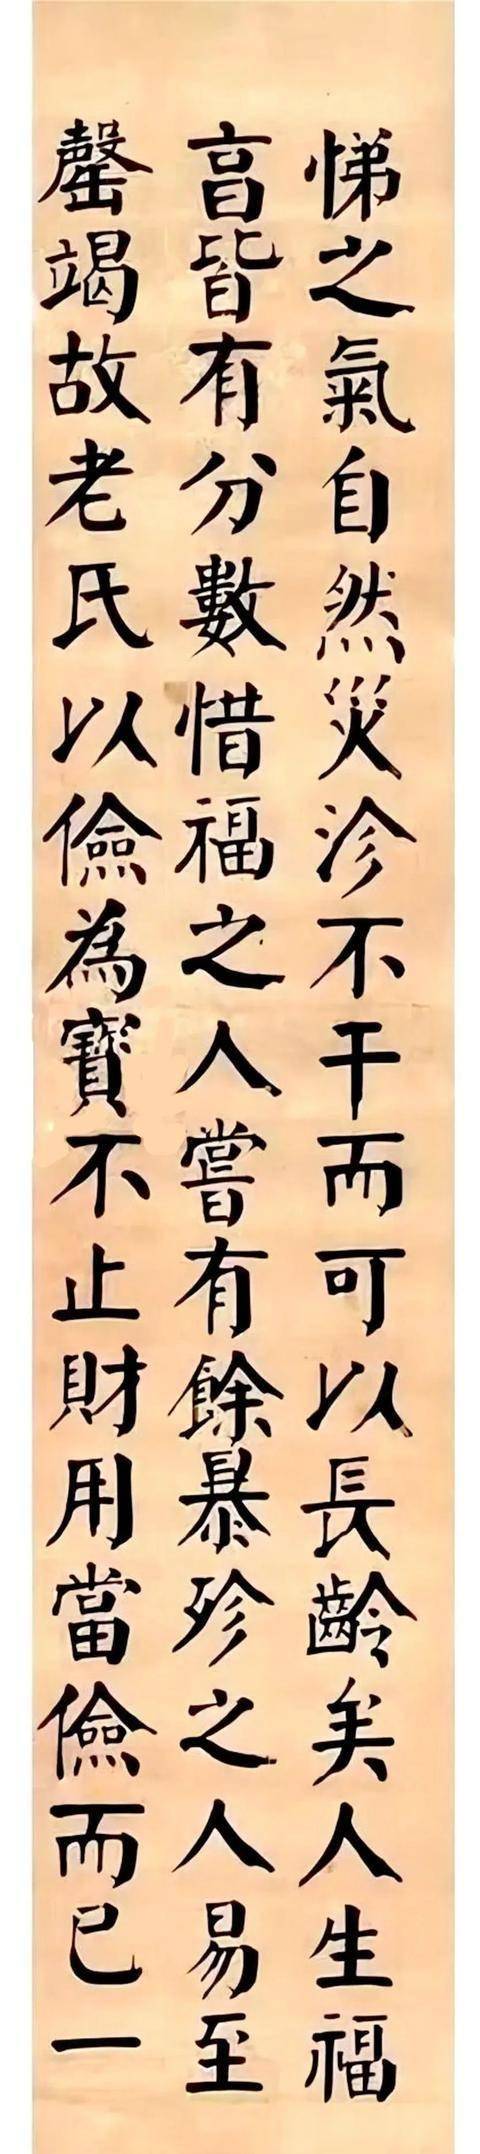 悌之氣自然災沴不干而可以長齡矣人生福
亯皆有分數惜福之人嘗有餘暴殄之人易至
罄竭故老氏以儉為寶不止財用當儉而已一